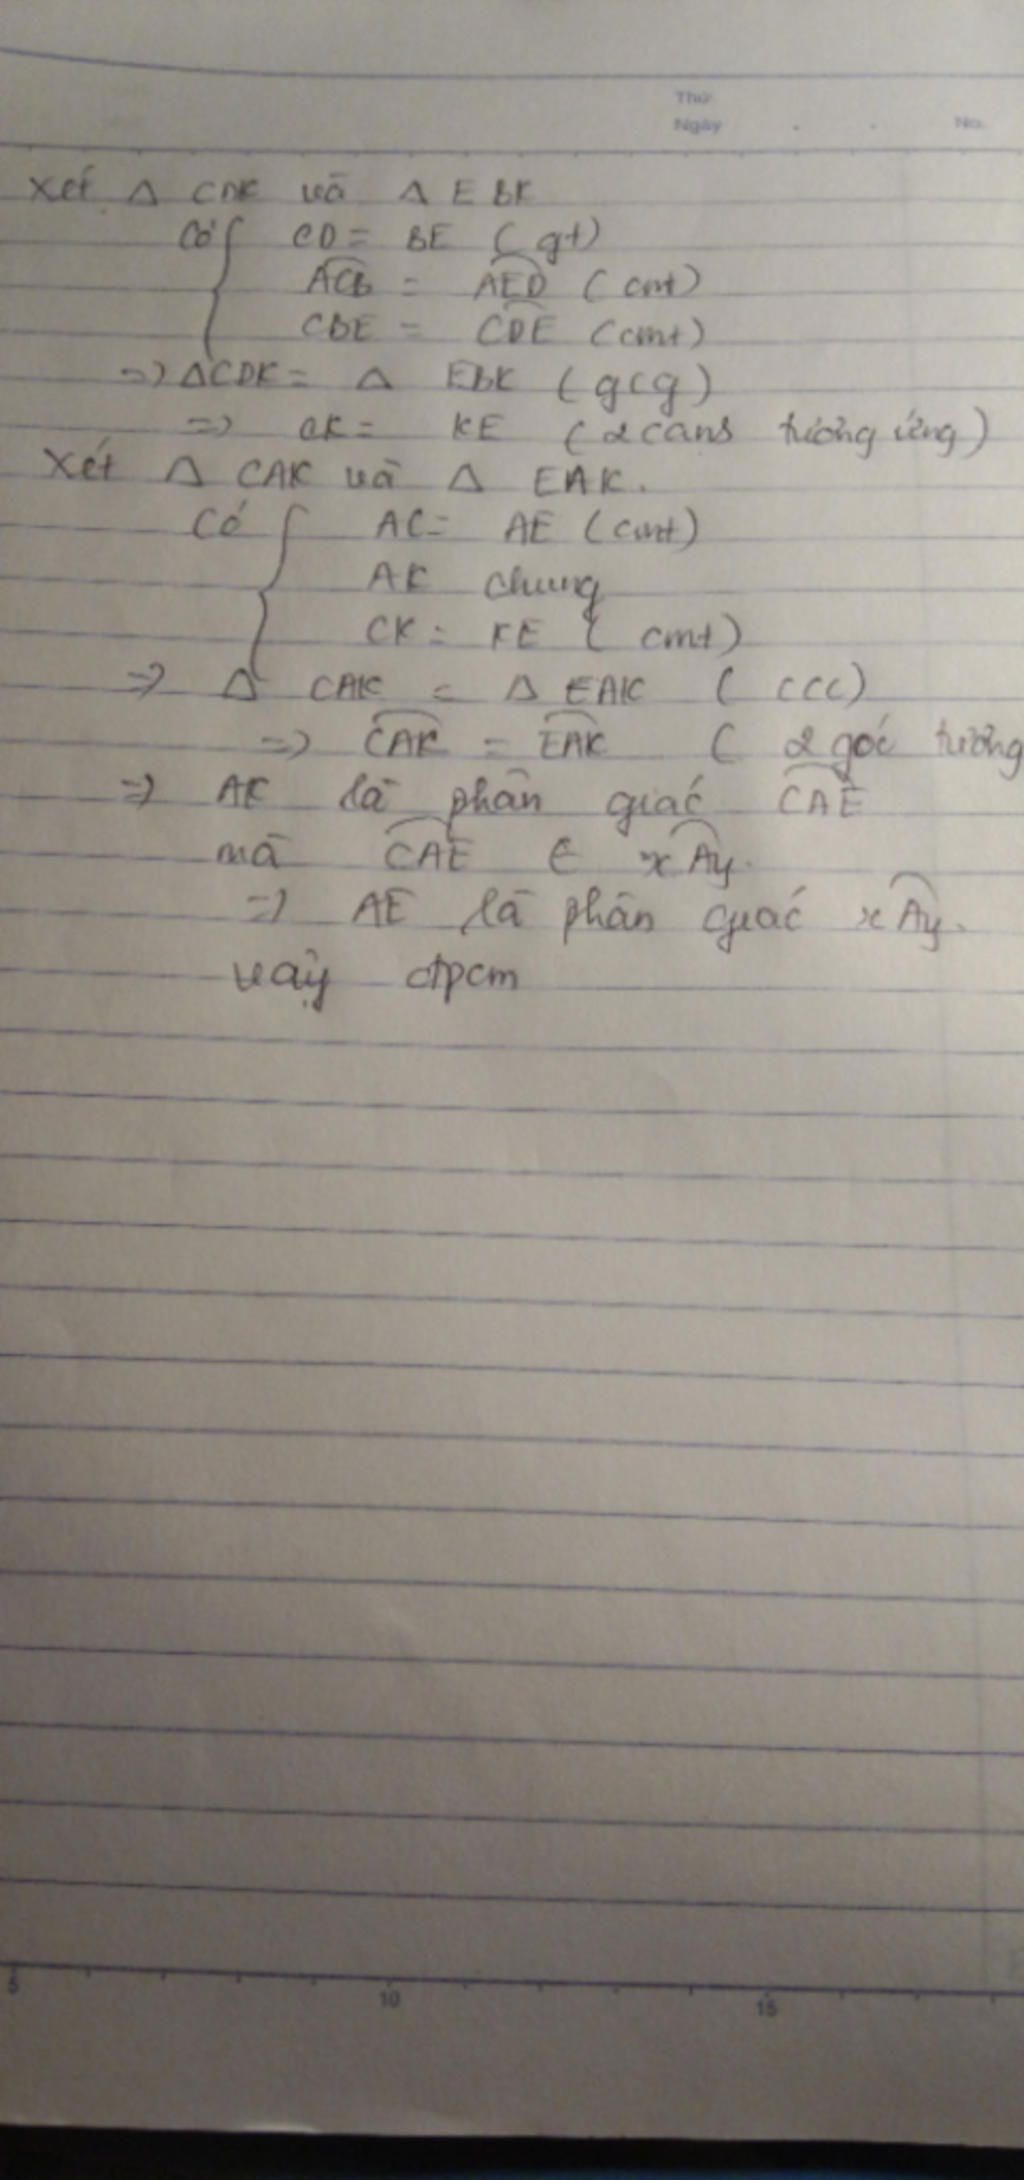 Thứ
Ngày . . No.
Xét Δ CDK và Δ EBK
Có { CD = BE (gt)
ACB = AED (cmt)
CBE = CDE (cmt)
=> ΔCDK = Δ EBK (gcg)
=> CK = KE (2 cans tương ứng)
Xét Δ CAK và Δ EAK.
Có { AC = AE (cmt)
AK chung
CK = KE (cmt)
=> Δ CAK = Δ EAK (ccc)
=> CAK = EAK (2 góc tương
=> AK là phân giác CAE
mà CAE ∈ xAy.
=> AE là phân giác xAy.
vậy đpcm
5 10 15